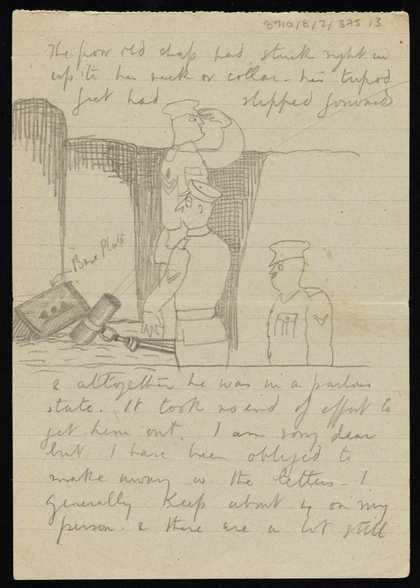 8710/8/2/375 13
The poor old chap had stuck right in
up to his neck or collar - his tripod
feet had slipped forward
Base Plate
& altogether he was in a parlous
state. It took no end of effort to
get him out. I am sorry dear
but I have been obliged to
make away w the letters - I
generally keep about 4 on my
person. & there are a lot still